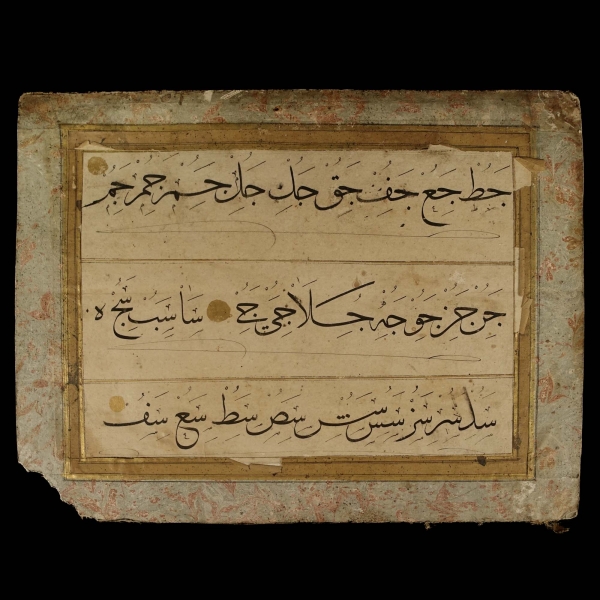 جط جع جف جق جك جل جم جم جم
جن جز جو جه جلا جي جے سا سب سج ه
سد سر سر سس سس سص سط سع سف